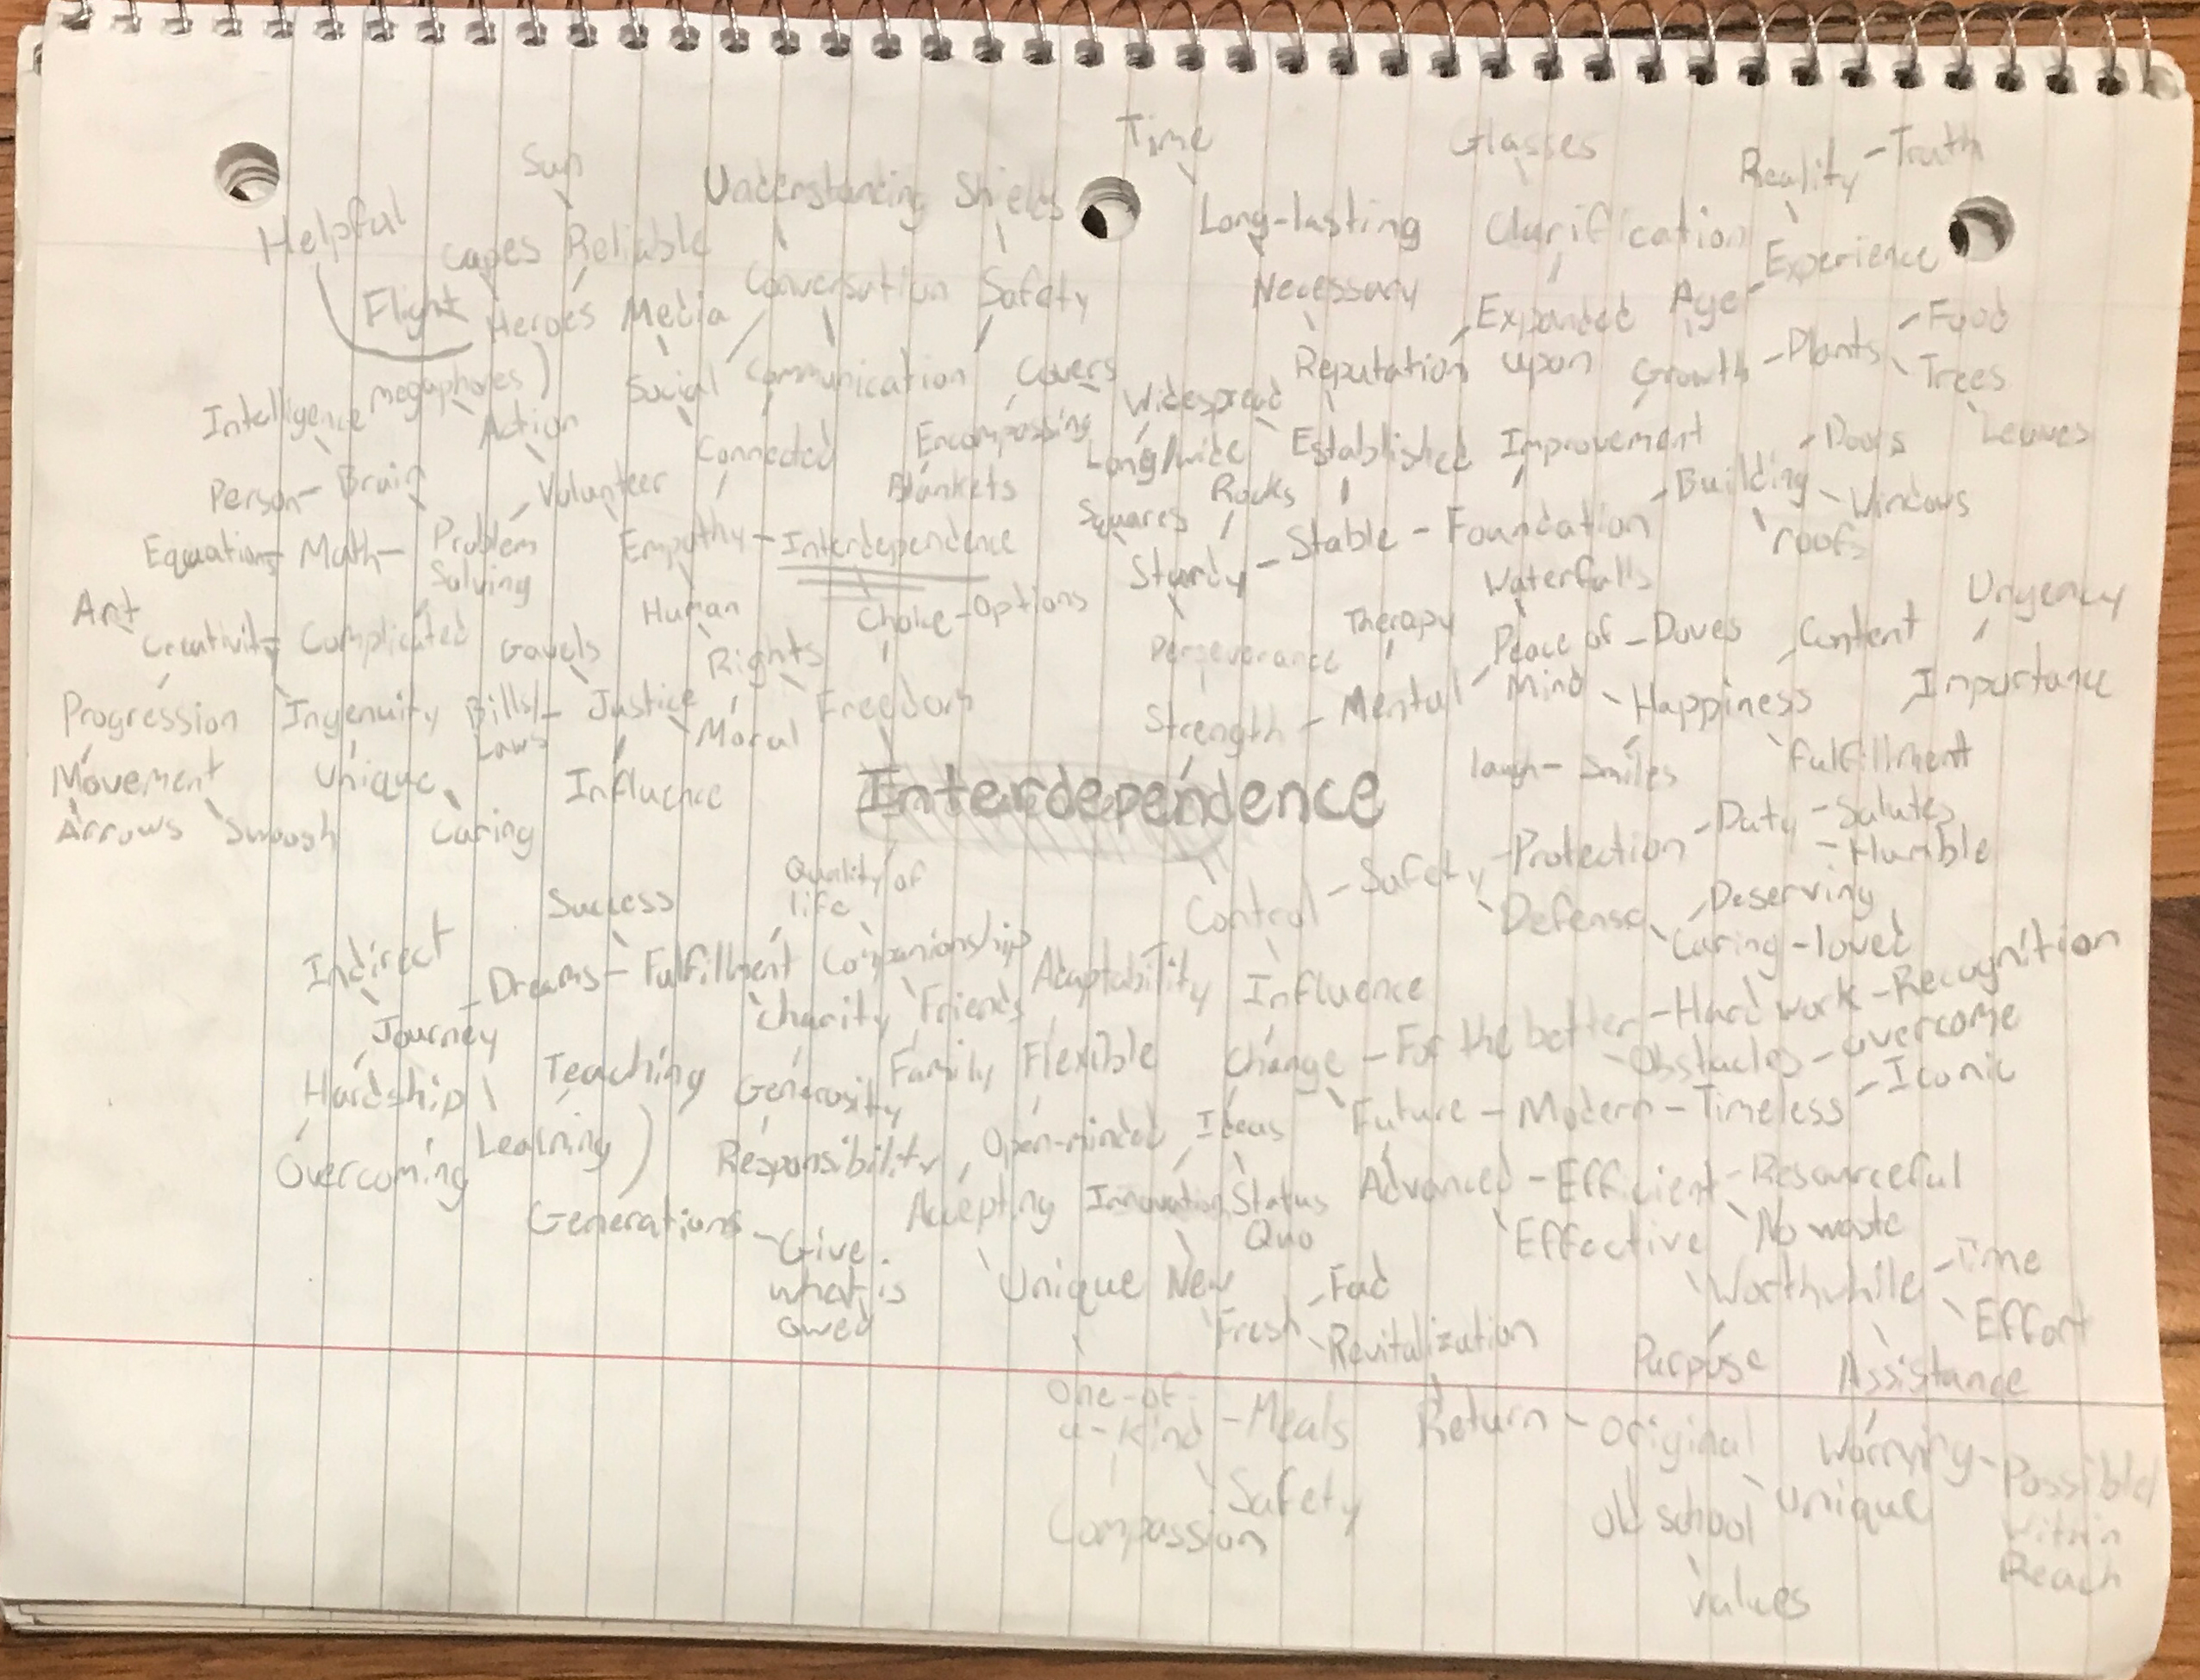 Time
Glasses
Reality - Truth
Sun
Understanding Shields
Helpful
Capes Reliable
Long-lasting
Clarification
Experience
Flight
Heroes Media
Conversation Safety
Necessary
Expanded upon
Age
Food
Intelligence
Megaphones
Action
Social Communication
Covers
Widespread
Reputation
Growth - Plants
Trees
Leaves
Person - Brain
Volunteer
Connected
Encompassing
Blankets
Long/wide
Rocks
Established
Improvement
Building
Doors
Windows
Squares
Equations - Math - Problem Solving
Empathy - Interdependence
Sturdy - Stable - Foundation
roofs
Art
Creativity - Complicated
Gavels
Human
Choice - Options
Perseverance
Therapy
Waterfalls
Peace of Mind - Doves
Content
Urgency
Progression
Ingenuity
Bills/Laws - Justice
Rights
Moral
Freedom
Strength - Mental
Happiness
Importance
Movement
Unique
Influence
laugh - Smiles
fulfillment
Arrows
Swoosh
Caring
Interdependence
Control - Safety - Protection - Duty - Salutes
- Humble
Success
Quality of
life
Defense
Deserving
Caring - loved
Indirect
Dreams - Fulfillment
Companionship
Adaptability
Influence
Journey
Charity
Friends
Change - For the better - Hard work - Recognition
Obstacles - overcome
Hardship
Teaching
Generosity
Family
Flexible
Future - Modern - Timeless - Iconic
Overcoming
Learning
Responsibility
Open-minded
Ideas
Generations - Give
what is
owed
Accepting
Innovation
Status
Quo
Advanced - Efficient - Resourceful
Effective
No waste
Unique
New
Fresh
Fad
Revitalization
Worthwhile - Time
Effort
Purpose
Assistance
One-of-
a-kind - Meals
Return - Original
Worrying - Possible/
Within
Reach
Compassion
Safety
Old school
unique
values